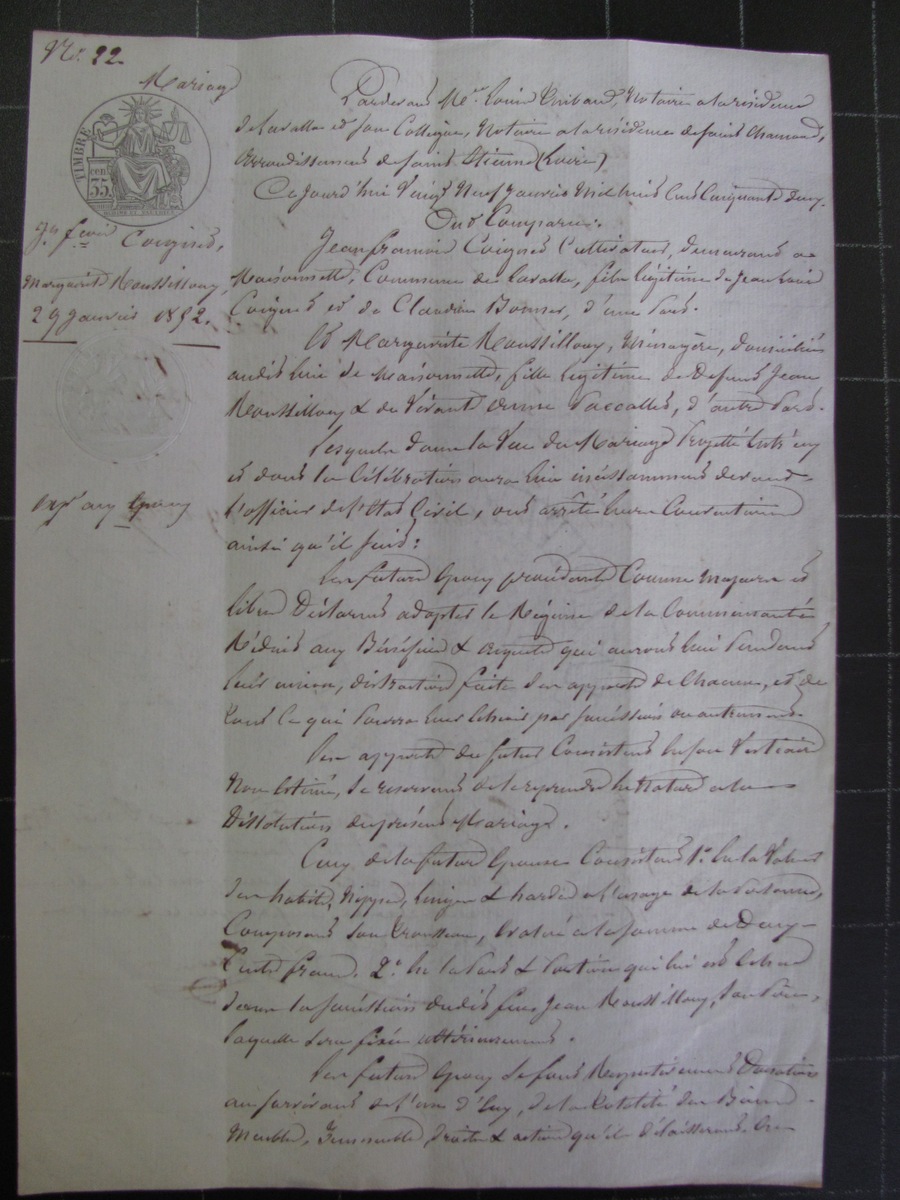 N° 22.
Mariage
TIMBRE
35 cen
Jn fcois Coignet,
Marguerite Roussillony,
29 Janvier 1852.
exp aux Epoux
Pardevant Me Louis Thibaud, Notaire a la résidence
de Lavalla et son Collègue, Notaire a la résidence de Saint Chamond,
arrondissement de Saint Etienne (Loire)
Cejourd'hui Vingt Neuf Janvier Mil huit Cent Cinquante deux.
Ont Comparu:
Jean françois Coignet Cultivateur, demeurant a
Maisonnette, Commune de Lavalla, fils légitime de Jean Louis
Coignet et de Claudine Bonnet, d'une Part.
Et Marguerite Roussillony, Ménagère, domiciliée
audit lieu de Maisonnette, fille légitime de Défunt Jean
Roussillony & de Vivante Paccallet, d'autre Part.
Lesquels dans la Vue du Mariage Projetté Entr'eux
et dont la Célébration aura lieu incessamment devant
l'officier de l'Etat Civil, ont arrêté leurs Conventions
ainsi qu'il suit:
Les futurs Epoux procédants Comme majeurs et
libres Déclarent adopter le Régime de la Communauté
Réduit aux Bénéfices & acquets qui auront lieu Pendant
leur union, distraction faite des apports de Chacun, et de
tout Ce qui Pourra leur Echoir par succession ou autrement.
Les apports du futur Consistent en son Vestiaire
Non Estimé, Se réservant de le reprendre en Nature a la
Dissolution du présent Mariage.
Ceux de la future Epouse Consistent 1° En la Valeur
des habits, Nippes, linges & hardes a l'usage de la Personne,
Composant Son Trousseau, Evalué a la somme de Deux
Cents francs. 2° En la Part & Portion qui lui est Echue
dans la succession dudit feu Jean Roussillony, son Père,
laquelle sera fixée ultérieurement.
Les futurs Epoux se font Respectivement Donation
au survivant de l'un d'Eux, de la totalité des Biens
Meubles, Immeubles, droits & actions qu'ils délaisseront. En